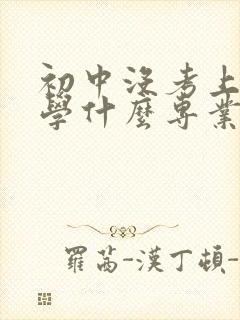 初中沒考上
學什麼專業
羅茜-漢丁頓-